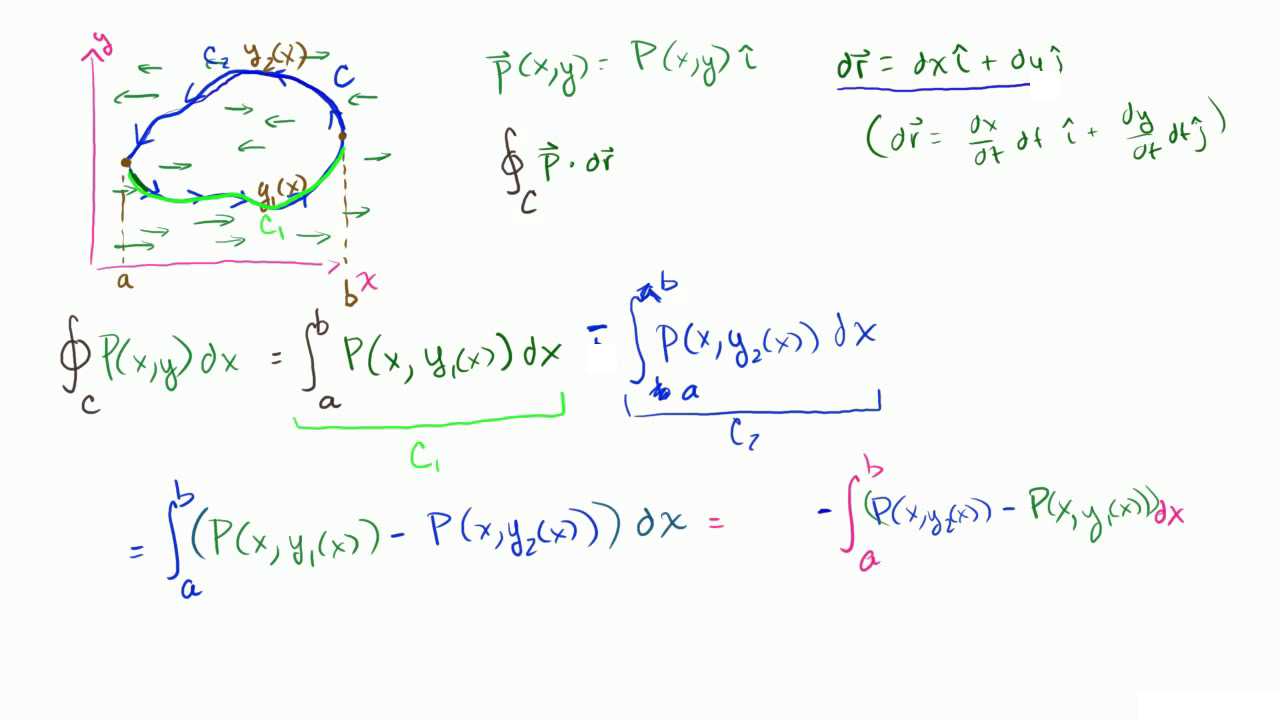 y
C₂ y₂(x)
C
y₁(x)
C₁
a
b x
p⃗(x,y) = P(x,y) î
∮_C p⃗ · dr⃗
dr⃗ = dx î + dy ĵ
(dr⃗ = dx/dt dt î + dy/dt dt ĵ)
∮_C P(x,y) dx = ∫_a^b P(x, y₁(x)) dx - ∫_a^b P(x, y₂(x)) dx
C₁ C₂
= ∫_a^b (P(x, y₁(x)) - P(x, y₂(x))) dx = - ∫_a^b (P(x, y₂(x)) - P(x, y₁(x))) dx